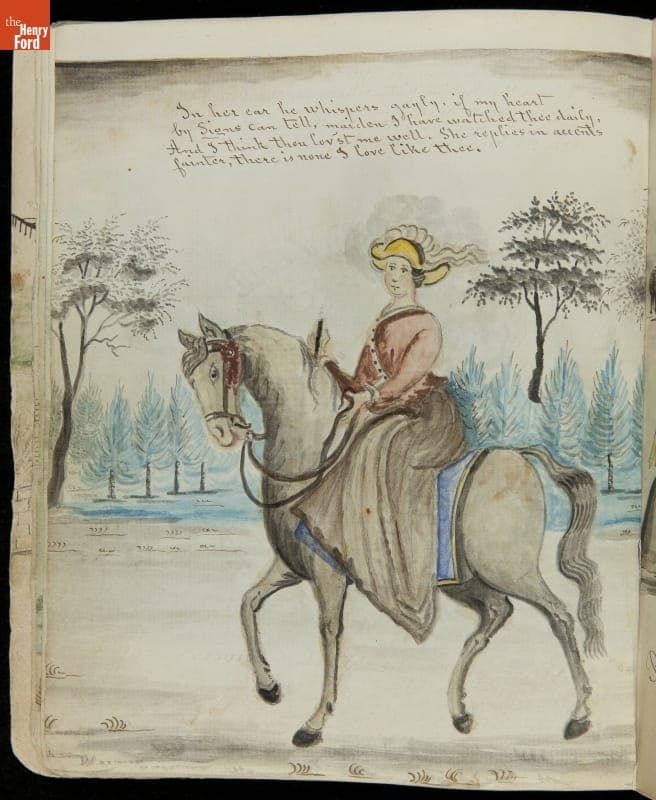 the
Henry
Ford
In her ear he whispers gayly, if my heart
by Signs can tell, maiden I have watched thee daily,
And I think thou lov'st me well. She replies in accents
fainter, there is none I love like thee.